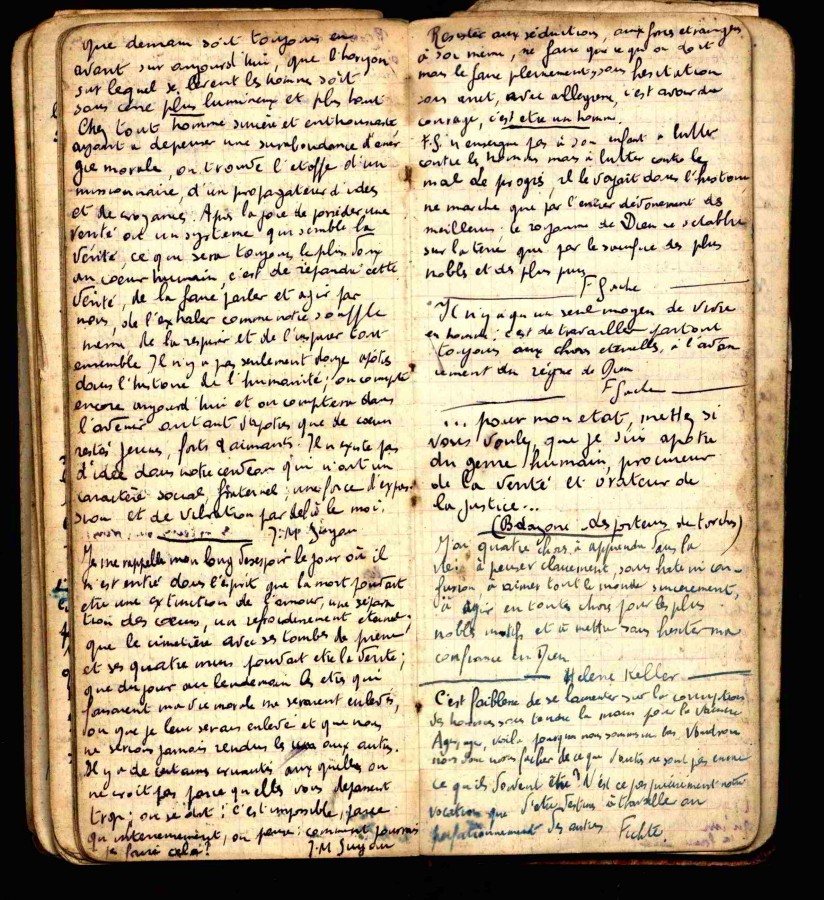 que demain soit toujours en
avant sur aujourd'hui, que l'horizon
sur lequel se lèvent les hommes soit
sans cesse plus lumineux et plus haut
Chez tout homme sincère et enthousiaste
ayant à dépenser une surabondance d'éner
gie morale, on trouve l'étoffe d'un
missionnaire, d'un propagateur d'idées
et de croyances. Après la joie de posséder une
vérité ou un système qui semble la
vérité, ce qui sera toujours le plus doux
au coeur humain, c'est de répandre cette
vérité, de la faire parler et agir par
nous, de l'exhaler comme notre souffle
même, de la respirer et de l'inspirer tout
ensemble Il n'y a pas seulement douze apôtres
dans l'histoire de l'humanité; on compte
encore aujourd'hui et on comptera dans
l'avenir autant d'apôtres que de coeurs
restés jeunes, forts & aimants. Il n'existe pas
d'idée dans notre cerveau qui n'ait un
caractère social, fraternel; une force d'expan
sion et de vibration par delà le moi.
J.M Guyau
Je me rappelle mon long désespoir le jour où il
m'est entré dans l'esprit que la mort pouvait
être une extinction de l'amour, une sépara
tion des coeurs, un refroidissement éternel;
que le cimetière avec ses tombes de pierre
et ses quatre murs pouvait être la vérité;
que du jour au lendemain les êtres qui
faisaient ma vie morale me seraient enlevés,
ou que je leur serais enlevé et que nous
ne serions jamais rendus les uns aux autres.
Il y a de certaines cruautés auxquelles on
ne croit pas parce qu'elles vous dépassent
trop; on se dit: c'est impossible, parce
qu'intérieurement, on pense: comment pourrais
je faire cela?
J.M Guyau
Résister aux séductions, aux forces étrangères
à soi même, ne faire que ce qu'on doit
mais le faire pleinement, sans hésitation
sans arrêt, avec allégresse, c'est avoir du
courage, c'est être un homme.
F.G. n'enseigne pas à son enfant à lutter
contre les hommes mais à lutter contre le
mal. Le progrès, il le voyait dans l'histoire
ne marche que par l'entier dévouement des
meilleurs. Le royaume de Dieu ne s'établit
sur la terre que par le sacrifice des plus
nobles et des plus purs
F Gache
Il n'y a qu'un seul moyen de vivre
en homme; c'est de travailler partout
toujours aux choses éternelles, à l'avan
cement du règne de Dieu
F Gache
... pour mon état, mettez si
vous voulez, que je suis apôtre
du genre humain, procureur
de la vérité et orateur de
la justice...
(Balazone des porteurs de torches)
J'ai quatre choses à apprendre dans la
vie: à penser clairement, sans hâte ni con-
fusion, à aimer tout le monde sincèrement,
à agir en toutes choses pour les plus
nobles motifs et à mettre sans hésiter ma
confiance en Dieu
Hélène Keller
C'est faiblesse de se lamenter sur la corruption
des hommes sans tendre la main pour la vaincre
Agissons, voilà pourquoi nous sommes ici bas. Voudrions
nous donc nous fâcher de ce que d'autres ne sont pas encore
ce qu'ils doivent être? N'est ce pas précisément notre
vocation que d'être destinés à travailler au
perfectionnement des autres Fichte.